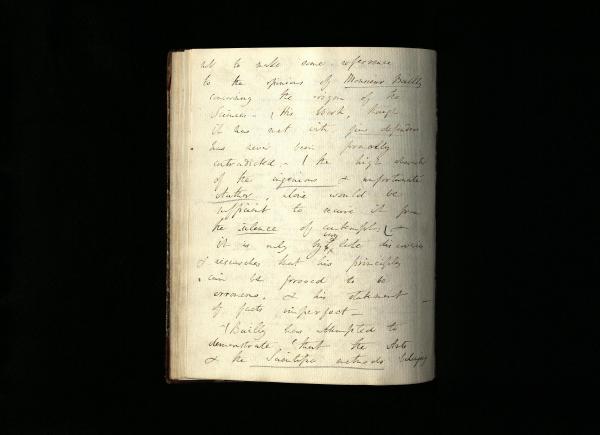 not to make some reference
to the opinions of Monsieur Bailly
concerning the origin of the
Sciences - this work, though
it has met with few defenders
has never been formally
contradicted - the high character
of the ingenious & unfortunate
Author, alone would be
sufficient to secure it from
the silence of contempt &
it is only by very late discoveries
& researches that his principles
can be proved to be
erroneous, & his statement
of facts imperfect -
Bailly has attempted to
demonstrate that the Arts
& the Scientific methods belonging